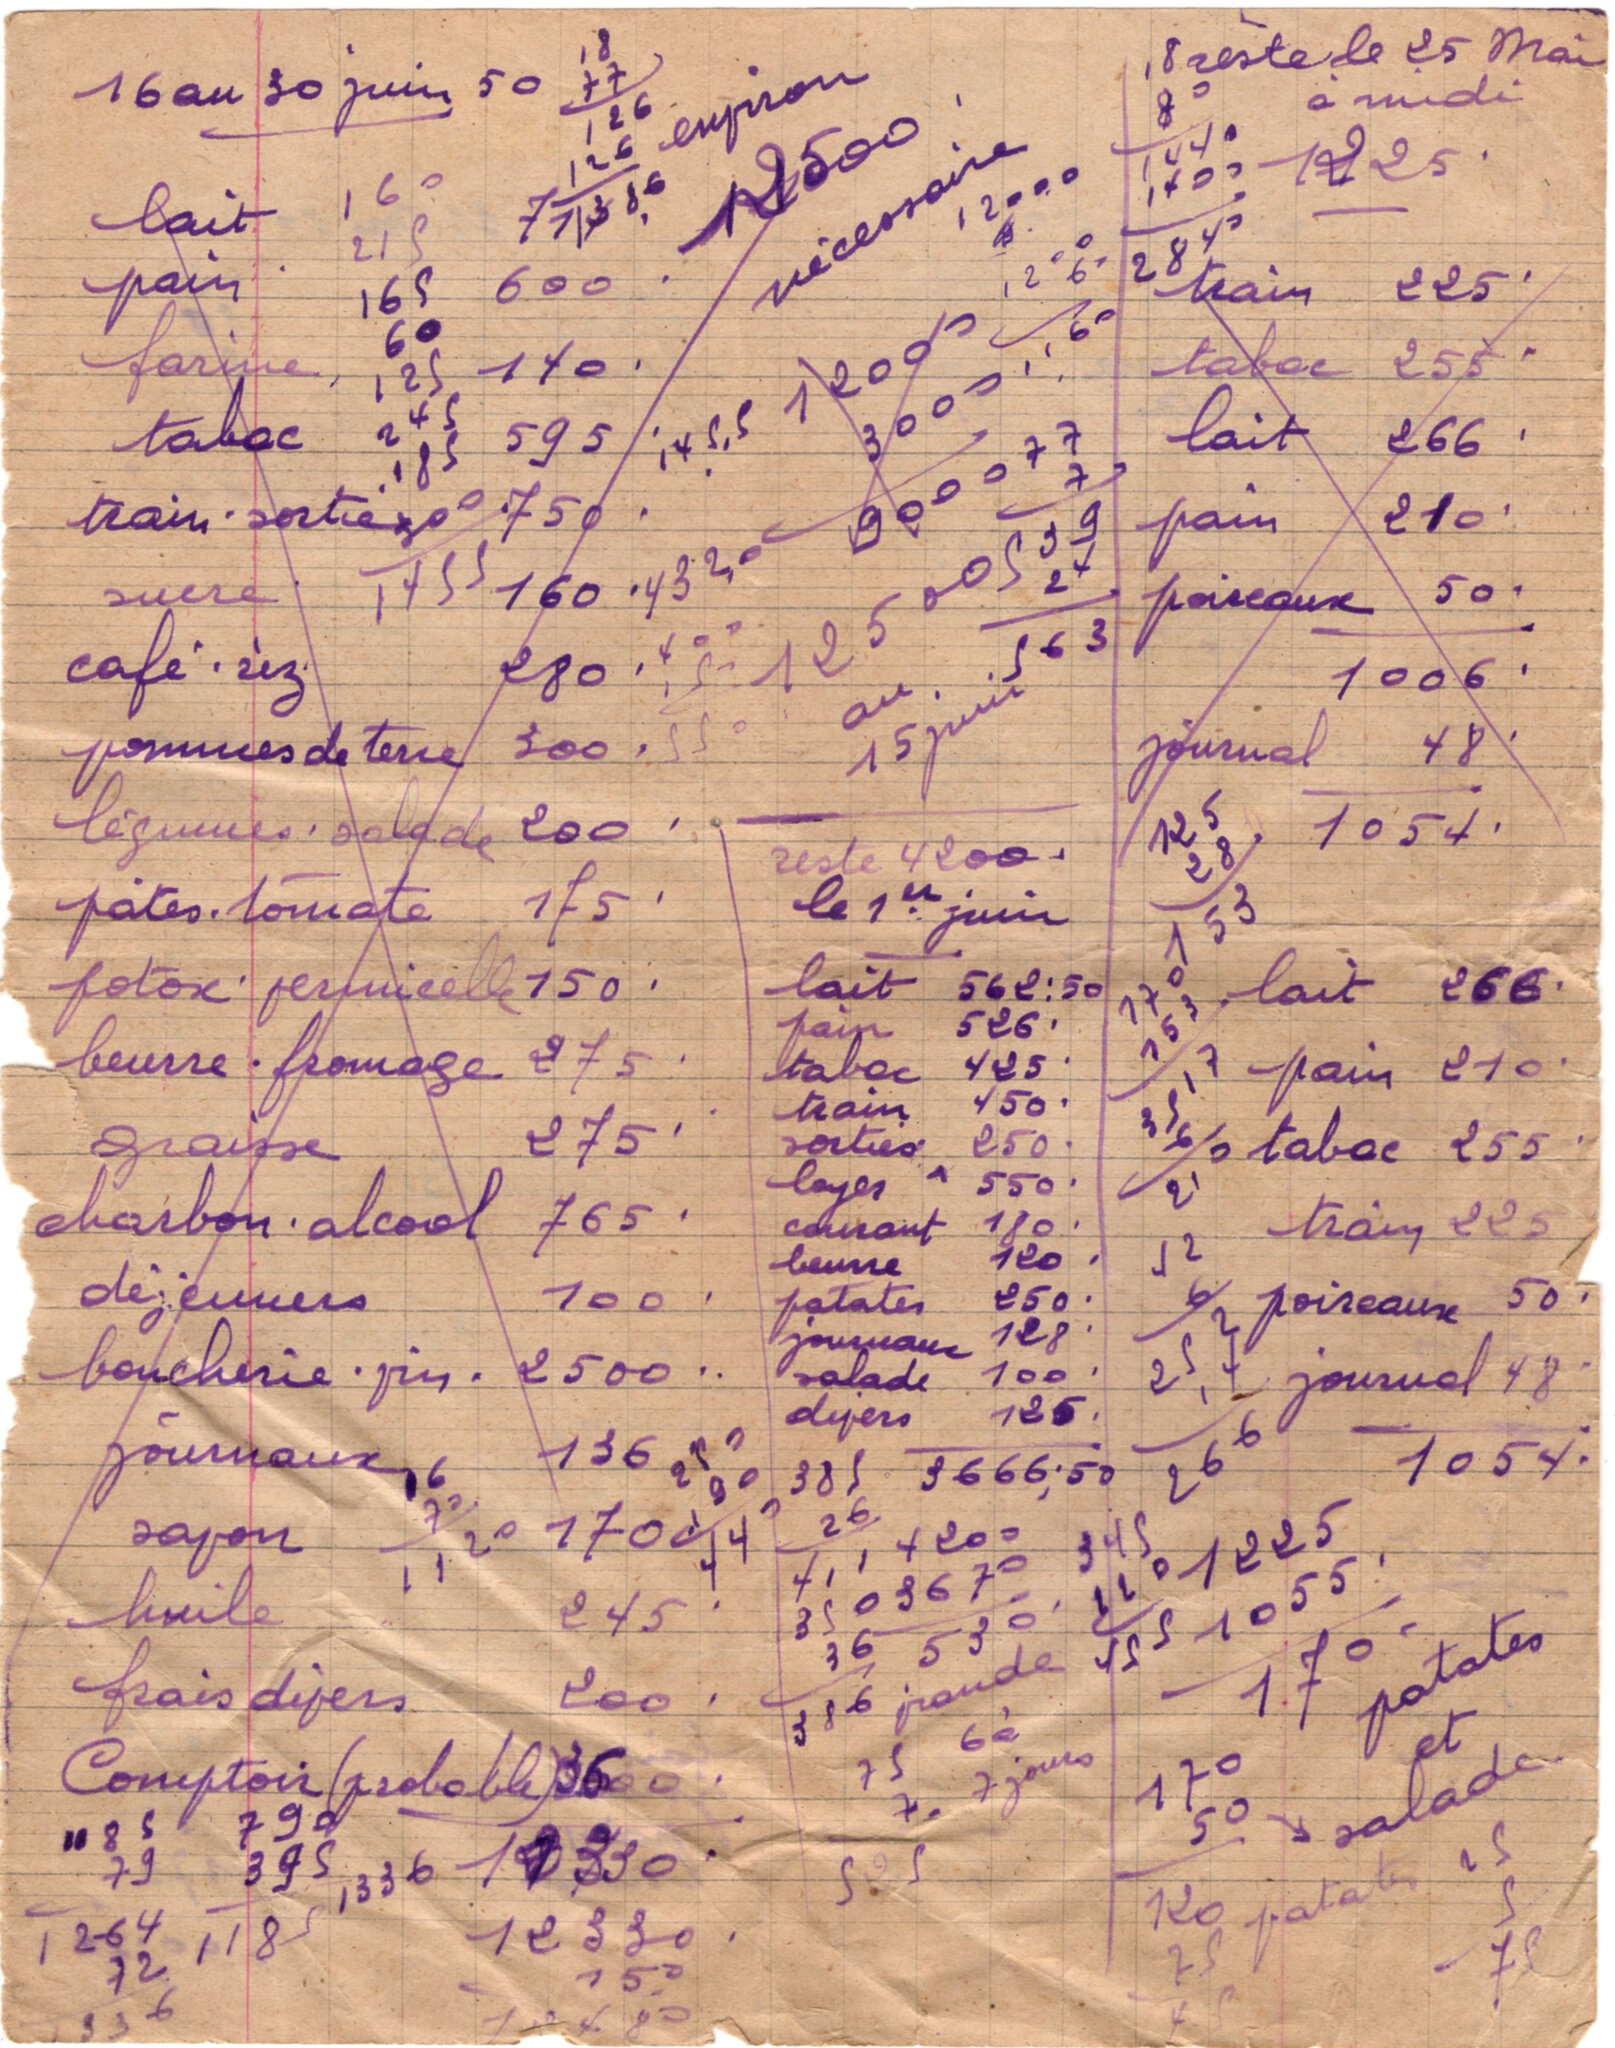 16 au 30 juin 50
environ
12500
nécessaire
lait
pain 600
farine 140
tabac 595
train. sorties 750
sucre 160
café. riz 280
pommes de terre 300
légumes. salade 200
pâtes. tomate 175
potox. vermicelle 150
beurre. fromage 275
graisse 275
charbon. alcool 765
déjeuners 100
boucherie. vin. 2500
journaux 136
savon 170
huile 245
frais divers 200
Comptoir (probable)
12330
150
18
77
126
126
1386
160
215
165
60
125
245
185
1455
12000
3000
9000
77
7
539
24
563
12500
au
15 juin
reste 4200
le 1er juin
lait 562.50
pain 526
tabac 425
train 450
sorties 250
loyer 550
courant 180
beurre 120
patates 250
journaux 128
salade 100
divers 125
3666.50
4200
3670
530
385
26
411
350
36
386
viande
6 à
7 jours
75
7
525
reste le 25 Mai
à midi
1225
18
80
1440
1400
2840
train 225
tabac 255
lait 266
pain 210
poireaux 50
1006
journal 48
1054
125
28
153
lait 266
pain 210
tabac 255
train 225
poireaux 50
journal 48
1054
170
153
17
1225
1055
170
patates
et
salade
170
50 → salade
120 patates
790
395
1185
1185
79
1264
72
1336
16
70
1120